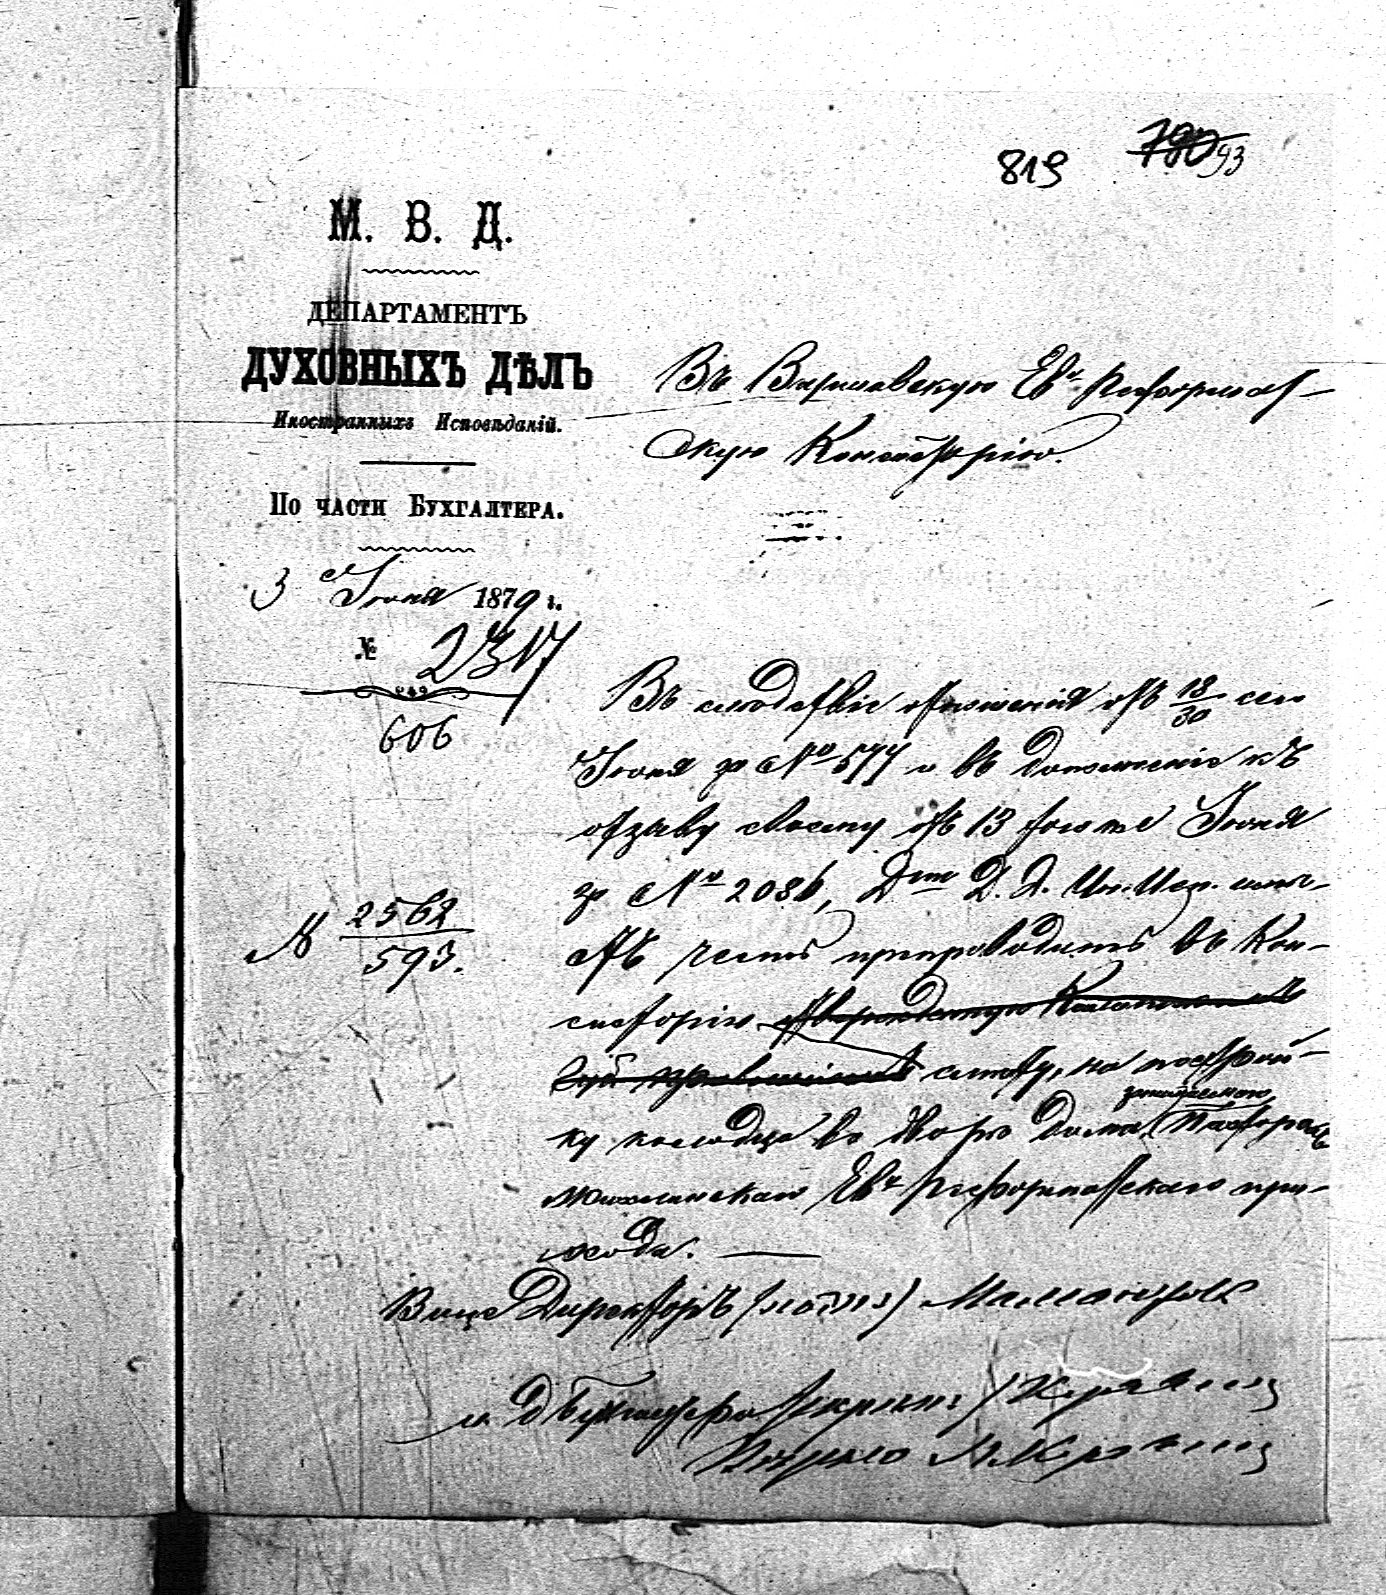 819 780 93
М. В. Д.
ДЕПАРТАМЕНТЪ
ДУХОВНЫХЪ ДѢЛЪ
Иностранныхъ Исповѣданій.
По части Бухгалтера.
3 Іюля 1879 г.
№ 2317
606
№ 2562
593.
Въ Варшавскую Ев. Реформат-
скую Консисторію.
Въ слѣдствіе отношенія отъ 18/30 сего
Іюня за № 577 и въ дополненіе къ
отзыву своему отъ 13 того же Іюня
за № 2086, Д. Д. Ин. Исп. имѣ-
етъ честь препроводить въ Кон-
систорію
смѣту, на построй-
ку колодца во дворѣ дома занимаемаго Пасторомъ
Ев. Реформатскаго при-
хода.
Вице Директоръ (подп.) Мамантовъ
и. д. Бухгалтера (скрѣп.)
Вѣрно